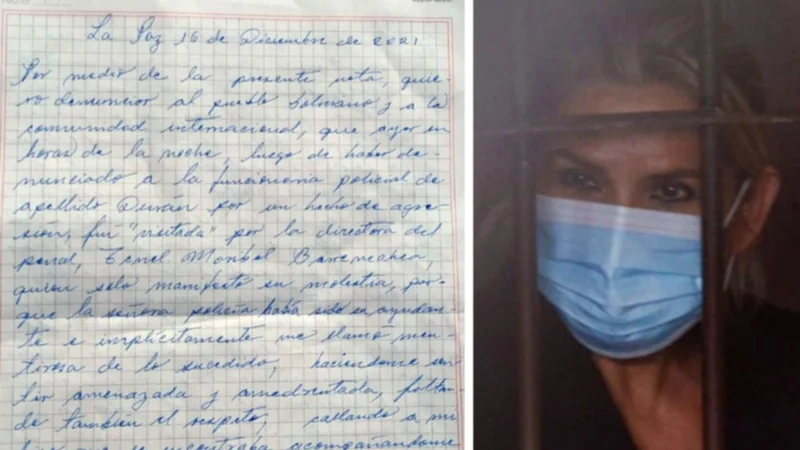 La Paz 16 de Diciembre de 2021
Por medio de la presente nota, quie-
ro denunciar al pueblo boliviano y a la
comunidad internacional, que ayer en
horas de la noche, luego de haber de-
nunciado a la funcionaria policial de
apellido Duran por un hecho de agre-
sión, fui "visitada" por la directora del
penal, Tcnel. Maribel
quien solo manifestó su molestia, por-
que la señora policía había sido su ayudan-
te e implícitamente me llamó men-
tirosa de lo sucedido, haciendome sen
tir amenazada y amedrentada, faltan-
do también el respeto, callando a mi
que se encontraba acompañandome